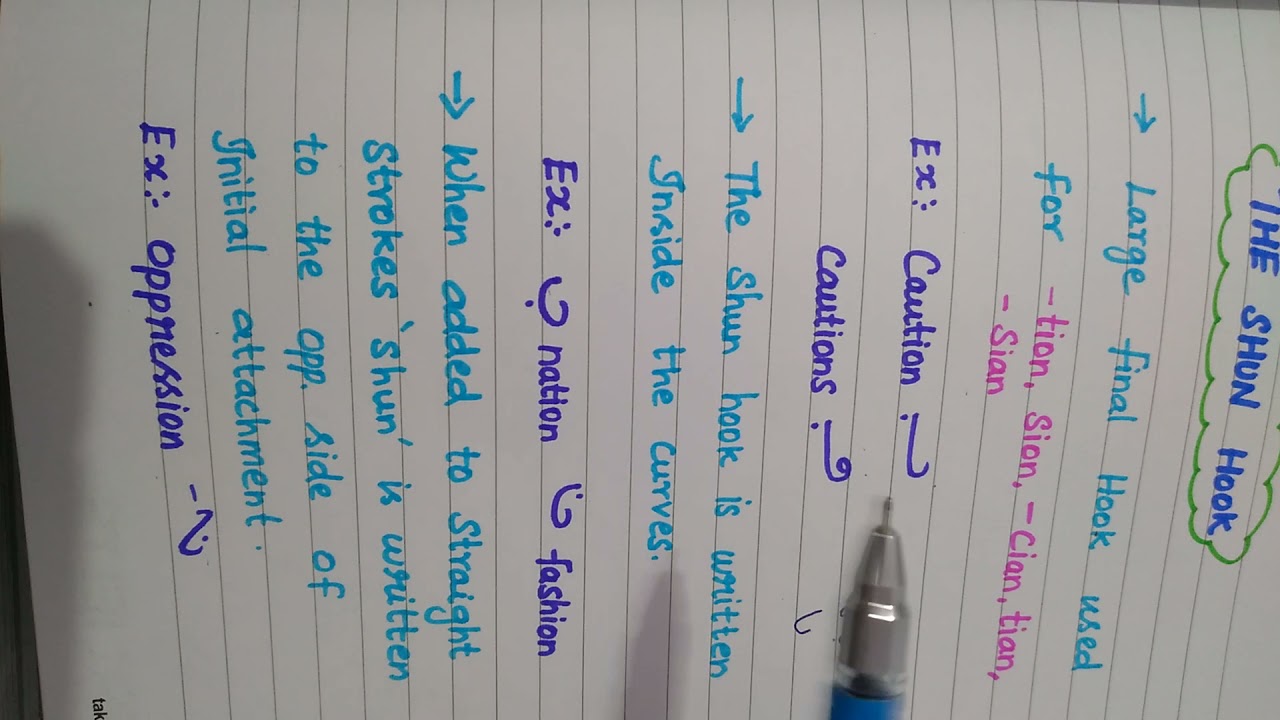 THE SHUN HOOK
→ Large final Hook used
for -tion, sion, -cian, tian,
- Sian
Ex:- Caution
Cautions
→ The shun hook is written
Inside the curves.
Ex:- nation fashion
→ When added to straight
strokes 'shun' is written
to the opp. side of
Initial attachment.
Ex:- oppression -